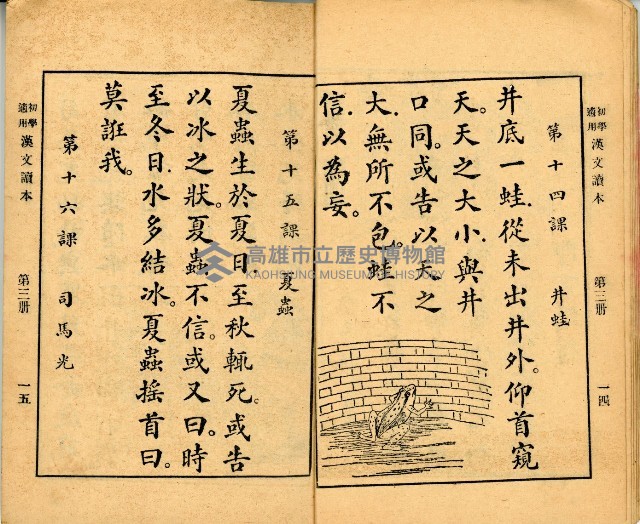 初學適用 漢文讀本 第三冊 一四
第十四課 井蛙
井底一蛙.從未出井外。仰首窺
天。天之大小.與井
口同。或告以天之
大.無所不包。蛙不
信.以為妄。
第十五課 夏蟲
夏蟲生於夏日.至秋輒死。或告
以冰之狀。夏蟲不信。或又曰。時
至冬日.水多結冰。夏蟲搖首曰。
莫誑我。
第十六課 司馬光
初學適用 漢文讀本 第三冊 一五
高雄市立歷史博物館
KAOHSIUNG MUSEUM OF HISTORY